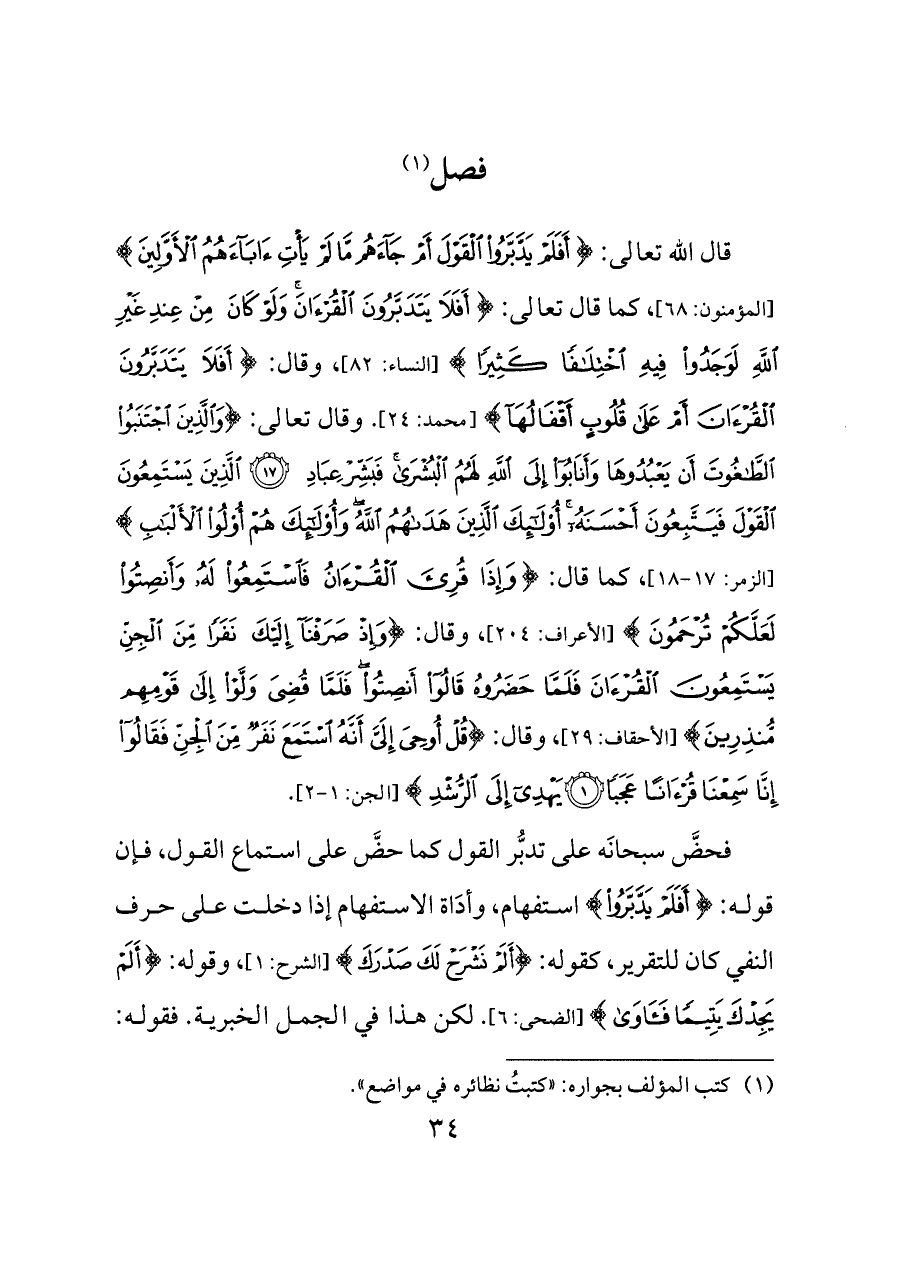 فصل(١)
قال الله تعالى: ﴿ أَفَلَمْ يَدَّبَّرُوا۟ ٱلْقَوْلَ أَمْ جَآءَهُم مَّا لَمْ يَأْتِ ءَابَآءَهُمُ ٱلْأَوَّلِينَ ﴾
[المؤمنون: ٦٨]، كما قال تعالى: ﴿ أَفَلَا يَتَدَبَّرُونَ ٱلْقُرْءَانَ ۚ وَلَوْ كَانَ مِنْ عِندِ غَيْرِ
ٱللَّهِ لَوَجَدُوا۟ فِيهِ ٱخْتِلَٰفًا كَثِيرًا ﴾ [النساء: ٨٢]، وقال: ﴿ أَفَلَا يَتَدَبَّرُونَ
ٱلْقُرْءَانَ أَمْ عَلَىٰ قُلُوبٍ أَقْفَالُهَآ ﴾ [محمد: ٢٤]. وقال تعالى: ﴿ وَٱلَّذِينَ ٱجْتَنَبُوا۟
ٱلطَّٰغُوتَ أَن يَعْبُدُوهَا وَأَنَابُوٓا۟ إِلَى ٱللَّهِ لَهُمُ ٱلْبُشْرَىٰ ۚ فَبَشِّرْ عِبَادِ ١٧ ٱلَّذِينَ يَسْتَمِعُونَ
ٱلْقَوْلَ فَيَتَّبِعُونَ أَحْسَنَهُۥٓ ۚ أُو۟لَٰٓئِكَ ٱلَّذِينَ هَدَىٰهُمُ ٱللَّهُ ۖ وَأُو۟لَٰٓئِكَ هُمْ أُو۟لُوا۟ ٱلْأَلْبَٰبِ ﴾
[الزمر: ١٧-١٨]، كما قال: ﴿ وَإِذَا قُرِئَ ٱلْقُرْءَانُ فَٱسْتَمِعُوا۟ لَهُۥ وَأَنصِتُوا۟
لَعَلَّكُمْ تُرْحَمُونَ ﴾ [الأعراف: ٢٠٤]، وقال: ﴿ وَإِذْ صَرَفْنَآ إِلَيْكَ نَفَرًا مِّنَ ٱلْجِنِّ
يَسْتَمِعُونَ ٱلْقُرْءَانَ فَلَمَّا حَضَرُوهُ قَالُوٓا۟ أَنصِتُوا۟ ۖ فَلَمَّا قُضِىَ وَلَّوْا۟ إِلَىٰ قَوْمِهِم
مُّنذِرِينَ ﴾ [الأحقاف: ٢٩]، وقال: ﴿ قُلْ أُوحِىَ إِلَىَّ أَنَّهُ ٱسْتَمَعَ نَفَرٌ مِّنَ ٱلْجِنِّ فَقَالُوٓا۟
إِنَّا سَمِعْنَا قُرْءَانًا عَجَبًا ١ يَهْدِىٓ إِلَى ٱلرُّشْدِ ﴾ [الجن: ١-٢].
فحضَّ سبحانَه على تدبُّر القول كما حضَّ على استماع القول، فإن
قوله: ﴿ أَفَلَمْ يَدَّبَّرُوا۟ ﴾ استفهام، وأدَاة الاستفهام إذا دخلت على حرف
النفي كان للتقرير، كقوله: ﴿ أَلَمْ نَشْرَحْ لَكَ صَدْرَكَ ﴾ [الشرح: ١]، وقوله: ﴿ أَلَمْ
يَجِدْكَ يَتِيمًا فَـَٔاوَىٰ ﴾ [الضحى: ٦]. لكن هذا في الجمل الخبرية. فقوله:
(١) كتب المؤلف بجواره: «كتبتُ نظائره في مواضع».
٣٤